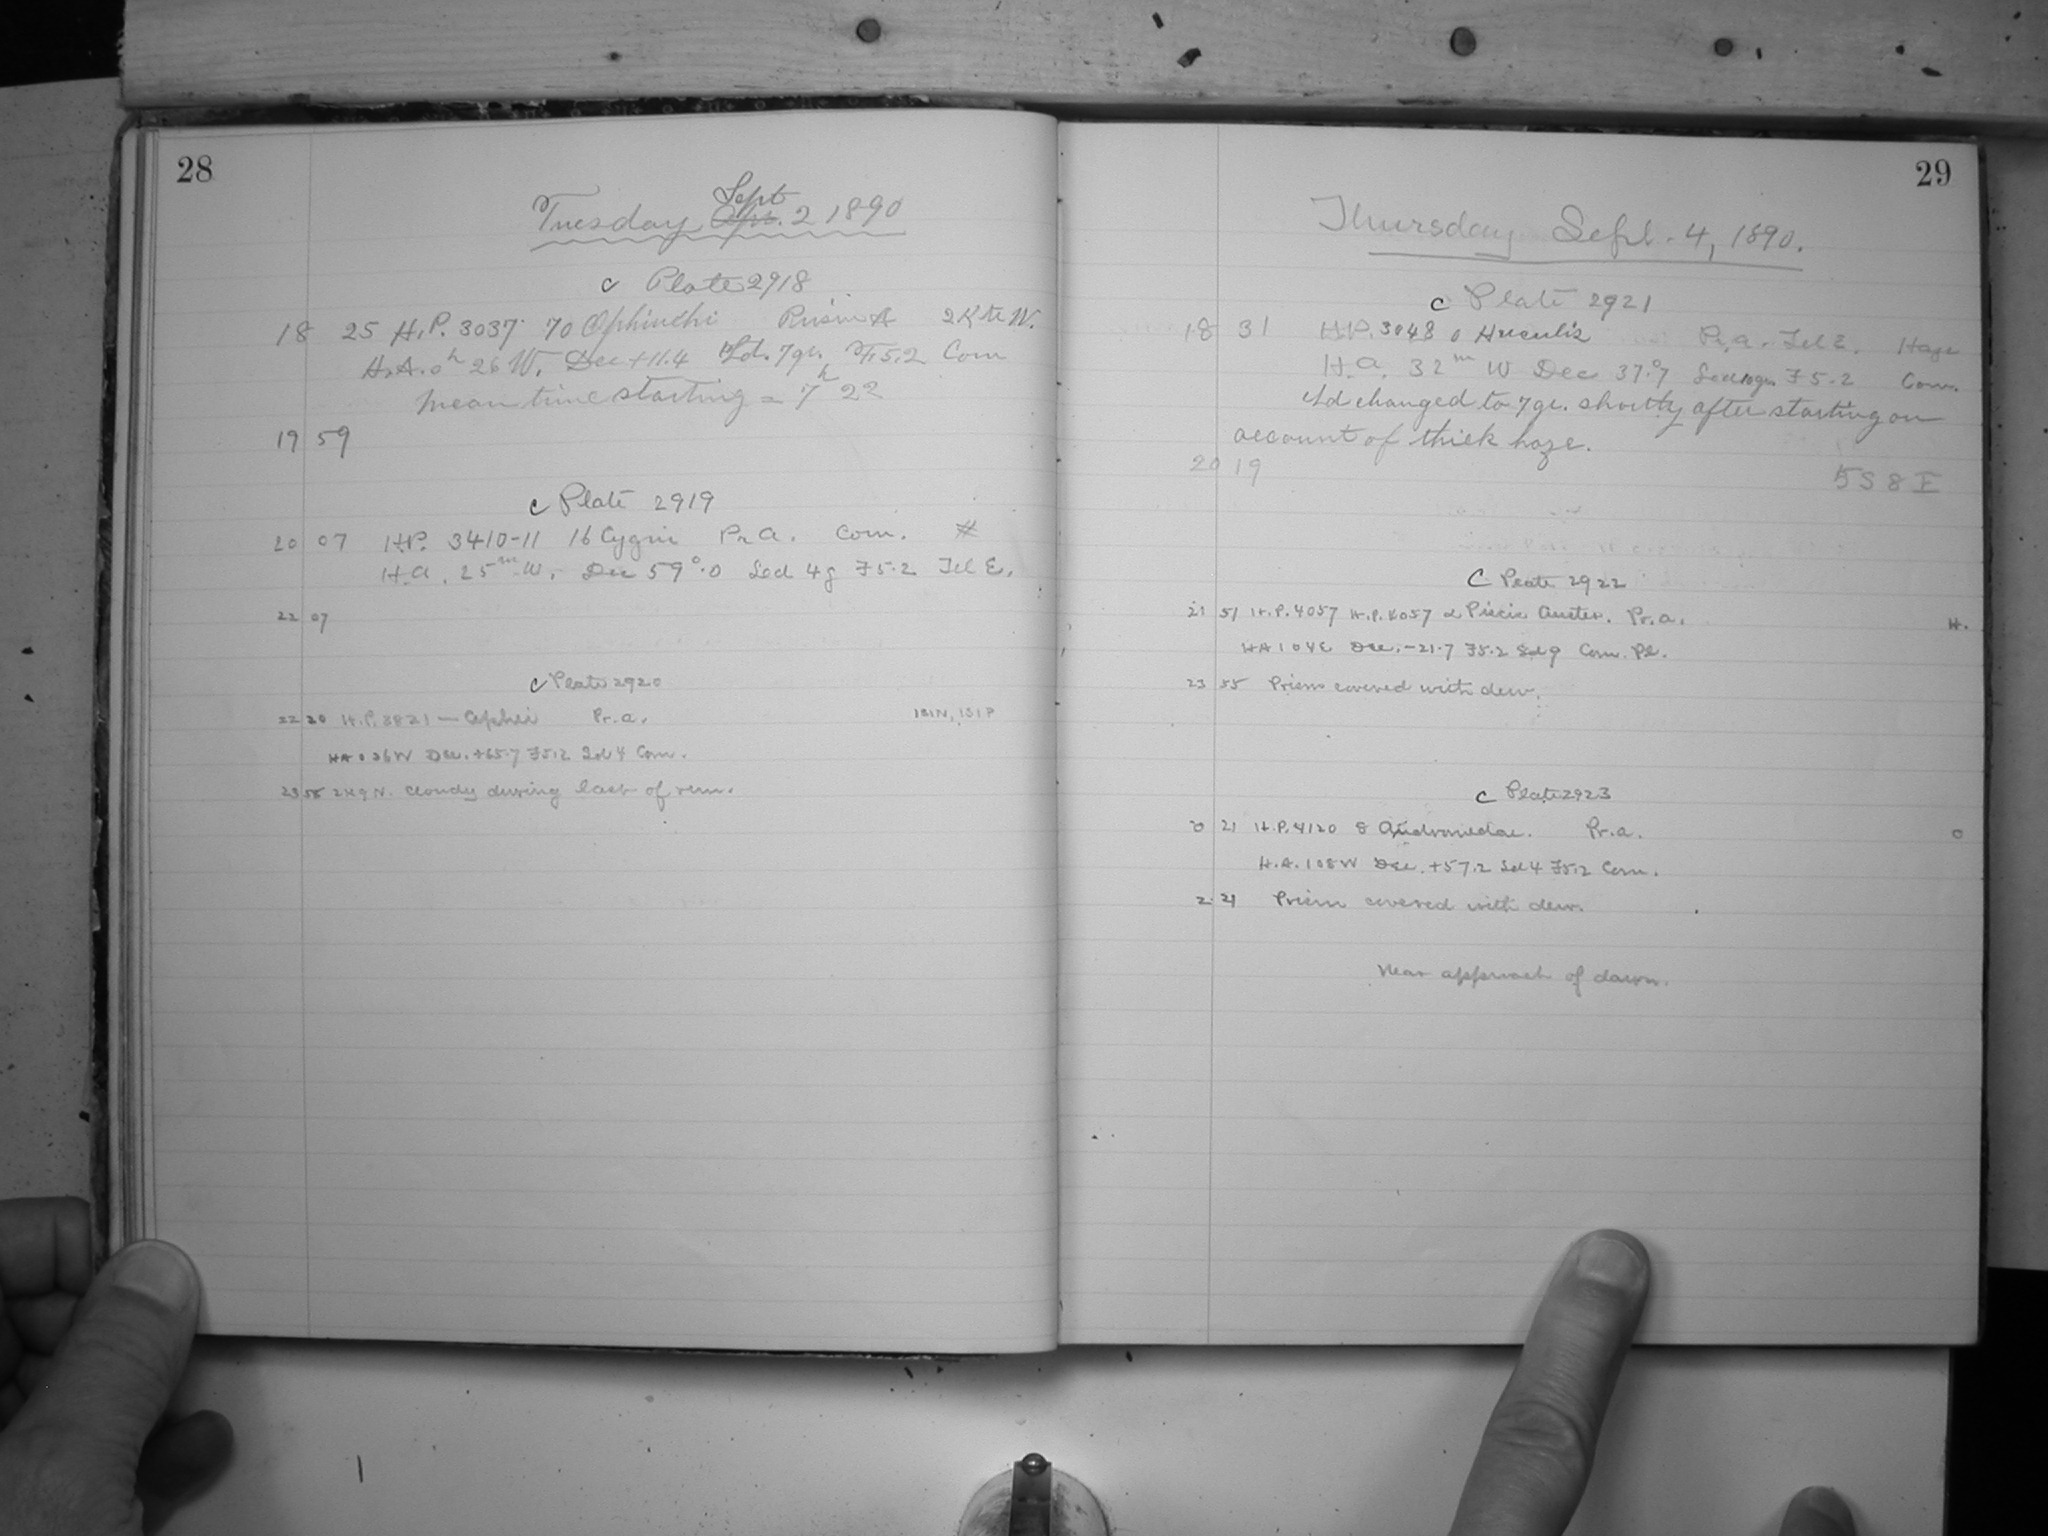 28
Tuesday Sept 2 1890
c Plate 2918
18 25 H.P. 3037 70 Ophiuchi Prism A W.
H.A. 0h 26 W. Dec +11.4 Sd. 7gr. F5.2 Com
Mean time starting = 7h 22
19 59
c Plate 2919
20 07 H.P. 3410-11 16 Cygni Pr A. Com.
H.A. 25m W. Dec 59°.0 Sed 4g F5.2 Tel E.
22 07
c Plate 2920
22 20 H.P. 3821 — Cephei Pr. a.
HA 0 26 W Dec. +65.7 F5.2 Sd 4 Com.
cloudy during last of run.
29
Thursday Sept. 4, 1890.
c Plate 2921
18 31 H.P. 3048 o Herculis Pr. a. Tel E. Haze
H.A. 32m W Dec 37.°7 Sed 10gr. F5.2 Com.
Sd changed to 7gr. shortly after starting on
account of thick haze.
20 19 5 S 8 F
C Plate 2922
21 51 H.P. 4057 H.P. 4057 α Piscis Auster. Pr. a. H.
HA 1 04 E Dec. -21.7 F5.2 Sd 9 Com. Pl.
23 55 Prism covered with dew.
c Plate 2923
0 21 H.P. 4120 8 Andromedae. Pr. a. 0
H.A. 1 08 W Dec. +57.2 Sd 4 F5.2 Com.
2 21 Prism covered with dew.
Near approach of dawn.